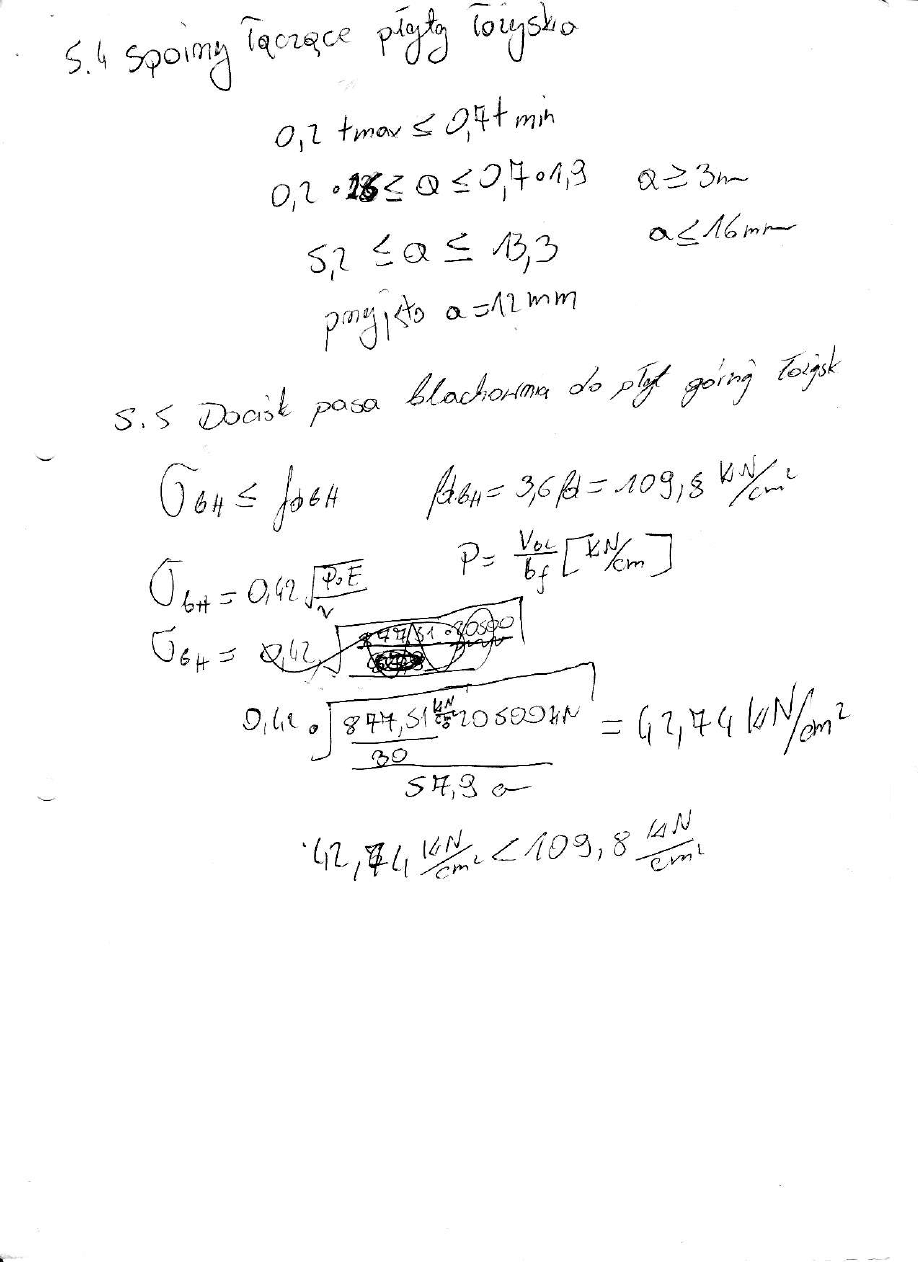 5.4 Spoiny łączące płyty łożyska
0,2 tmax ≤ 0,7 t min
0,2 · 26 ≤ a ≤ 0,7 · 1,9 a ≥ 3m
5,2 ≤ a ≤ 13,3 a ≤ 16mm
przyjęto a = 12mm
5.5 Docisk pasa blachownia do płyt górną łożysk
σbH ≤ fdbH fdbH = 3,6 fd = 109,8 kN/cm²
σbH = 0,42 √(P·E/r) P = Vol/bf [kN/cm]
σbH =
0,42 · √(877,51 kN/cm · 20500 kN / 30 / 57,9 a) = 42,74 kN/cm²
42,74 kN/cm² < 109,8 kN/cm²